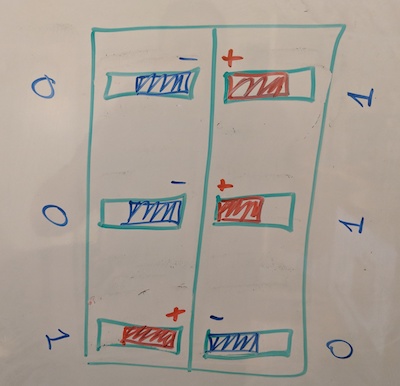 0 - + 1
0 - + 1
1 + - 0